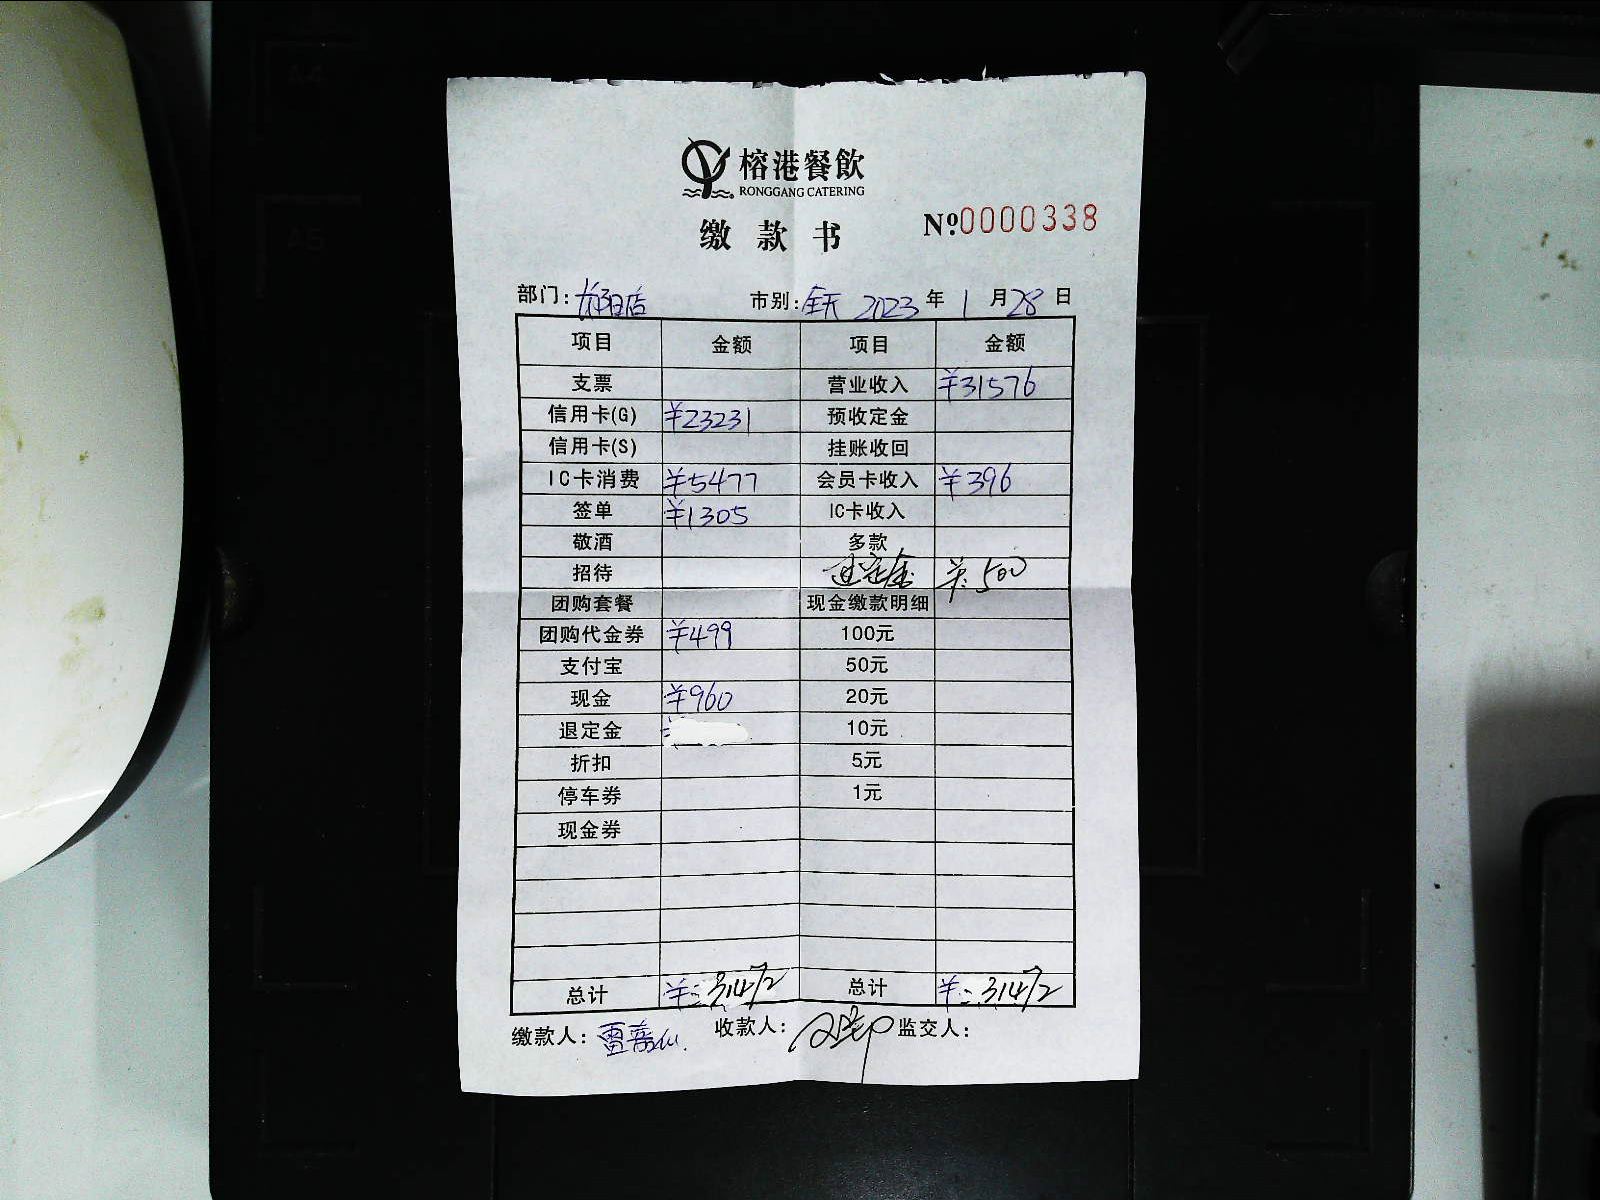 A4
A5
榕港餐飲
RONGGANG CATERING
缴款书
Nº 0000338
部门: 阳店 市别: 全天 2023 年 1 月 28 日
项目 金额 项目 金额
支票 营业收入 ¥31576
信用卡(G) ¥23231 预收定金
信用卡(S) 挂账收回
IC卡消费 ¥5477 会员卡收入 ¥396
签单 ¥1305 IC卡收入
敬酒 多款
招待 退定金 ¥-500
团购套餐 现金缴款明细
团购代金券 ¥499 100元
支付宝 50元
现金 ¥960 20元
退定金 ¥ 10元
折扣 5元
停车券 1元
现金券
总计 ¥: 31472 总计 ¥: 31472
缴款人: 雷 收款人: 监交人: